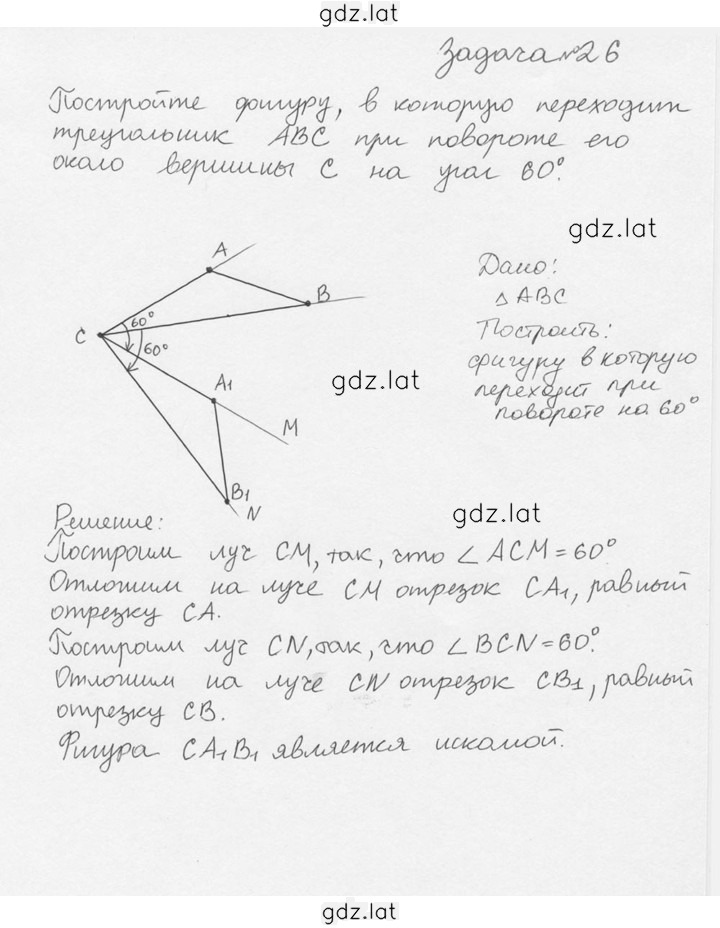 gdz.lat
Задача №26
Постройте фигуру, в которую переходит
треугольник ABC при повороте его
около вершины C на угол 60°.
gdz.lat
A
B
C
60°
60°
A1
M
B1
N
Дано:
△ ABC
Построить:
фигуру в которую
переходит при
повороте на 60°
gdz.lat
gdz.lat
Решение:
Построим луч CM, так, что ∠ ACM = 60°.
Отложим на луче CM отрезок CA1, равный
отрезку CA.
Построим луч CN, так, что ∠ BCN = 60°.
Отложим на луче CN отрезок CB1, равный
отрезку CB.
Фигура CA1B1 является искомой.
gdz.lat